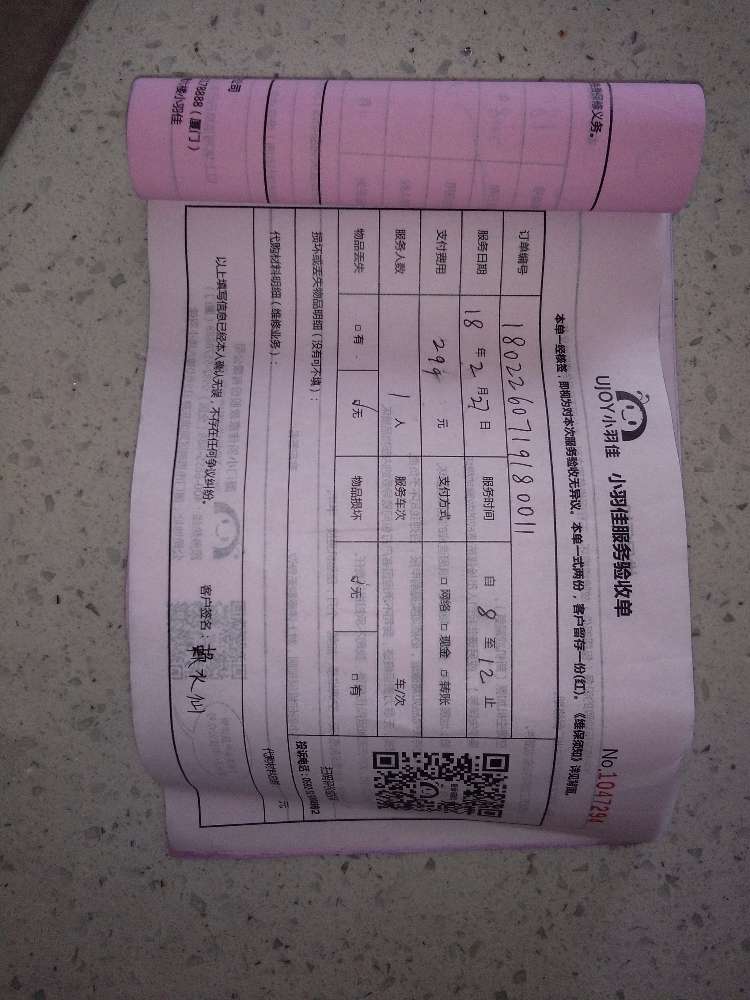 UJOY小羽佳 小羽佳服务验收单
No.1047294
本单一经核签,即视为对本次服务验收无异议。本单一式两份,客户留存一份(红)。《维保须知》详见背面。
订单编号 1802260719180011
服务日期 18年2月27日 服务时间 自8至12止
支付费用 299元 支付方式 □网络 □现金 □转账
服务人数 1人 服务车次 车/次
物品丢失 □有 √无 物品损坏 √无 □有
损坏或丢失物品明细(没有可不填):
代购材料明细(维修业务):
元
以上填写信息已经本人确认无误,不存在任何争议纠纷。
客户签名:
水仙
义务。
公司
78888(厦门)
小羽佳